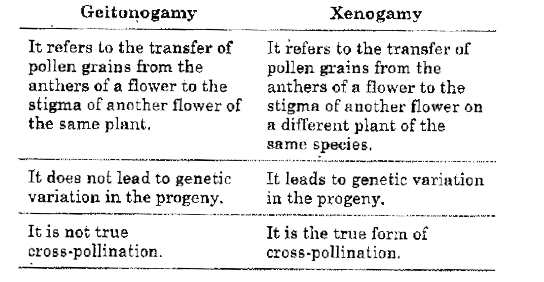 Geitonogamy Xenogamy
It refers to the transfer of
pollen grains from the
anthers of a flower to the
stigma of another flower of
the same plant.
It refers to the transfer of
pollen grains from the
anthers of a flower to the
stigma of another flower on
a different plant of the
same species.
It does not lead to genetic
variation in the progeny.
It leads to genetic variation
in the progeny.
It is not true
cross-pollination.
It is the true form of
cross-pollination.